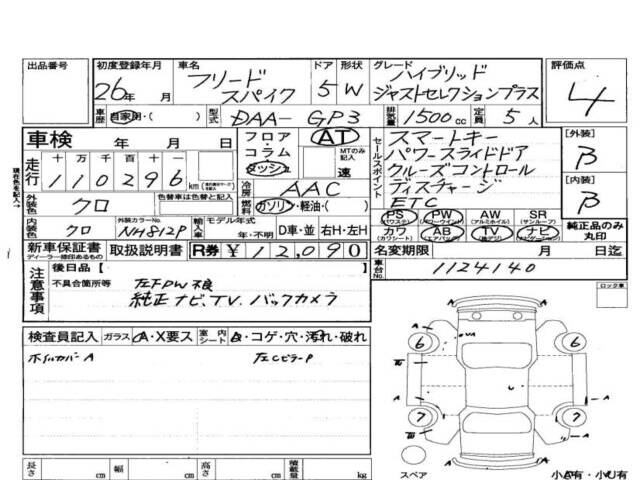 出品番号 初度登録年月 車名 ドア 形状 グレード 評価点
26年 月 フリード スパイク 5 W ハイブリッド ジャストセレクションプラス 4
車歴 自家用・( ) 型式 DAA- GP3 排気量 1500cc 定員 5人
車検 年 月 日 フロア・コラム・ダッシュ AT MTのみ記入 速 セールスポイント スマートキー
パワースライドドア
クルーズコントロール
ディスチャージ
ETC
[外装] B
[内装] B
走行 十 万 千 百 十 一
110296 km
現在色を記入→
外装色 クロ 色替車は色替と記入 冷房 AAC
燃料 ガソリン・軽油・( )
内装色 クロ 外装カラーNo. NH812P 輸入車 モデル年式 年・不明 D車・並 右H・左H
PS PW AW SR
カワ AB TV ナビ
純正品のみ丸印
新車保証書 ディーラー捺印あるもの 取扱説明書 R券 ¥12,090 名変期限 月 日迄
車台No. 1124140
注意事項 後日品 [
不具合箇所等 左FPW不良
純正ナビ、TV、バックカメラ
ロック車
検査員記入 ガラス A・X要ス 室内シート コゲ・穴・汚れ・破れ
ホイルカバーA 左CピラーP
A A
6 6
7 7
A A
スペア
小A有・小U有
長さ cm 幅 cm 高さ cm 積載量 kg